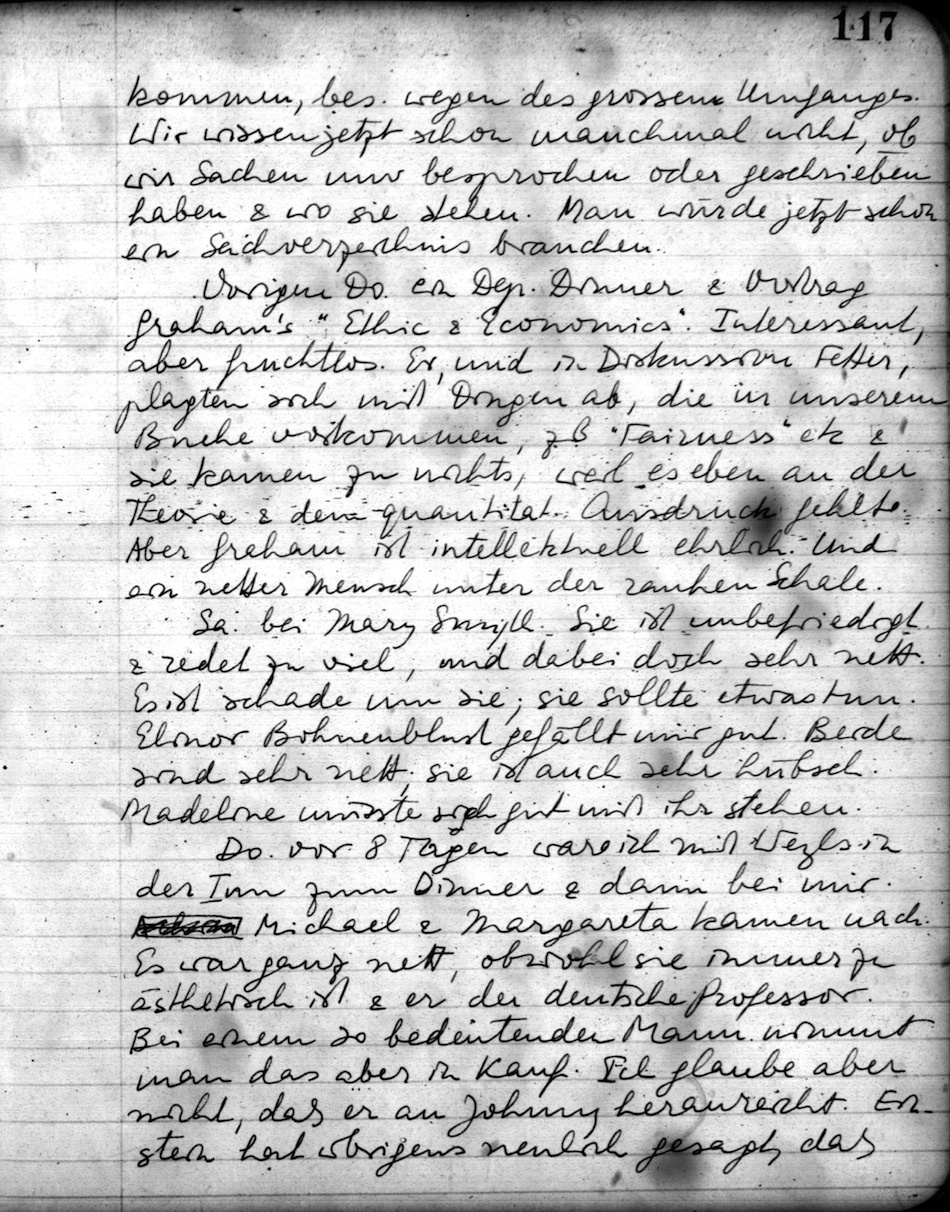 117
kommen, bes. wegen des grossen Umfanges.
Wir wissen jetzt schon manchmal nicht, ob
wir Sachen nur besprochen oder geschrieben
haben & wo sie stehen. Man würde jetzt schon
ein Sachverzeichnis brauchen.
Vorigen Do. ein Dep. Dinner & Vortrag
Graham's "Ethic & Economics". Interessant,
aber fruchtlos. Er, und in Diskussion Fetter,
plagten sich mit Dingen ab, die in unserem
Buche vorkommen, zB "Fairness" etc &
sie kamen zu nichts, weil es eben an der
Theorie & dem quantitat. Ausdruck fehlte.
Aber Graham ist intellektuell ehrlich. Und
ein netter Mensch unter der rauhen Schale.
Sa. bei Mary Smyth. Sie ist unbefriedigt
& redet zu viel, und dabei doch sehr nett.
Es ist schade um sie; sie sollte etwas tun.
Elinor Bohnenblust gefällt mir gut. Beide
sind sehr nett; sie ist auch sehr hübsch.
Madeline müsste sich gut mit ihr stehen.
Do. vor 8 Tagen war ich mit Weyls in
der Inn zum Dinner & dann bei mir.
Michael & Margareta kamen nach.
Es war ganz nett, obwohl sie immer zu
ästhetisch ist & er der deutsche Professor.
Bei einem so bedeutenden Mann nimmt
man das aber in Kauf. Ich glaube aber
nicht, dass er an Johnny heranreicht. Ein-
stein hat übrigens neulich gesagt, dass